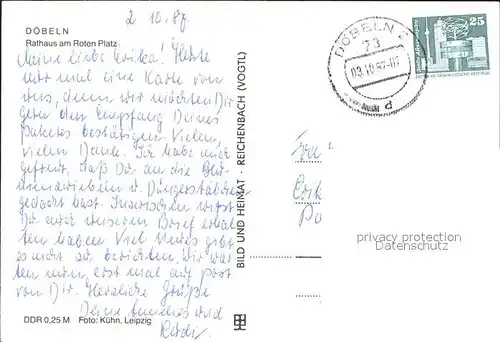 2. 10. 87
DÖBELN
Rathaus am Roten Platz
Meine liebe Erika! Heute
nur mal eine Karte von
uns, denn wir möchten Dir
gern den Empfang Deines
Paketes bestätigen. Vielen,
vielen Dank. Ich habe mich
gefreut, daß Du an die
und Düngerstäbchen
gedacht hast. Inzwischen wirst
Du auch unseren Brief erhal-
ten haben. Viel Neues gibt
es nicht zu berichten. Wir war-
ten nun erst mal auf Post
von Dir. Herzliche Grüße
Deine
DDR 0,25 M Foto: Kühn, Leipzig
BILD UND HEIMAT · REICHENBACH (VOGTL)
DÖBELN 2
73
03.10.87-07
d
25
DEUTSCHE DEMOKRATISCHE REPUBLIK
Frau
privacy protection
Datenschutz